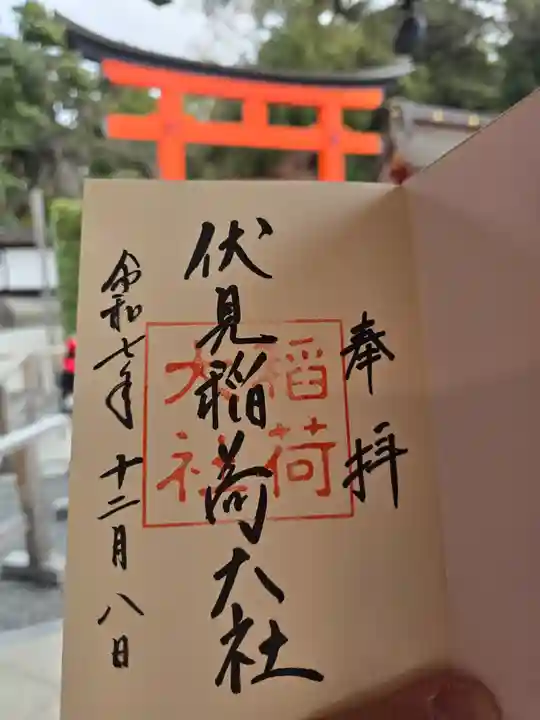 奉拝
稲荷
大社
伏見稲荷大社
令和七年十二月八日